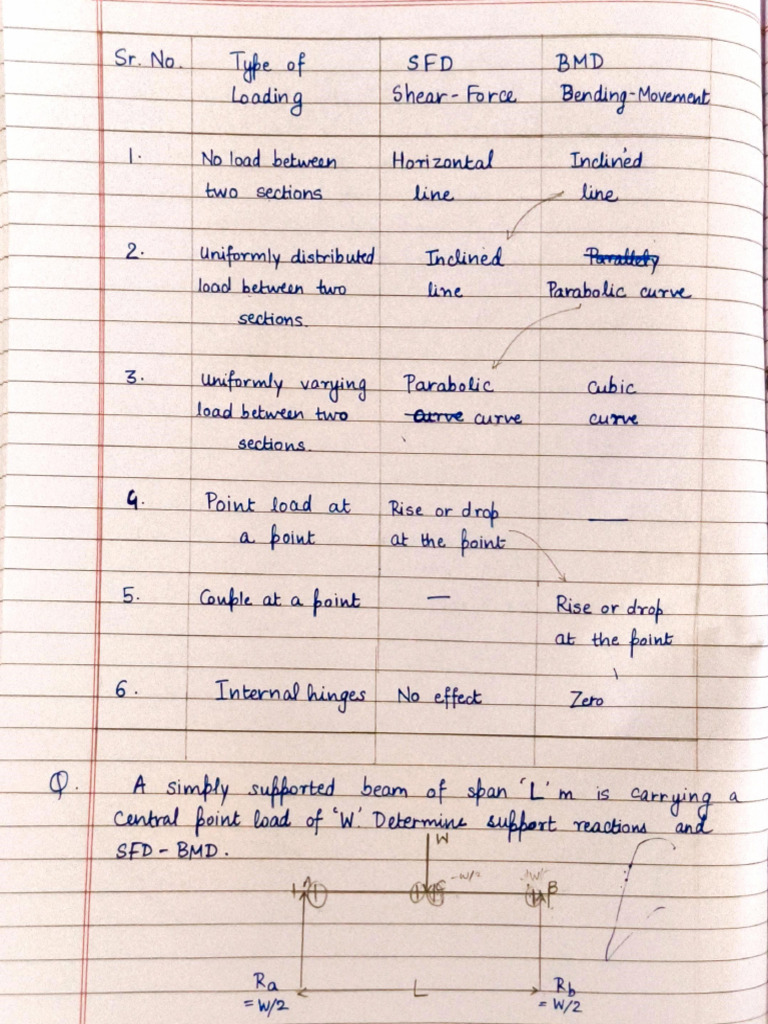 Sr. No. Type of SFD BMD
Loading Shear-Force Bending-Movement
1. No load between Horizontal Inclined
two sections line line
2. Uniformly distributed Inclined Parallely
load between two line Parabolic curve
sections.
3. Uniformly varying Parabolic cubic
load between two curve curve curve
sections.
4. Point load at Rise or drop —
a point at the point
5. Couple at a point — Rise or drop
at the point
6. Internal hinges No effect Zero
Q. A simply supported beam of span 'L' m is carrying a
central point load of 'W'. Determine support reactions and
SFD - BMD.
W
A C -W/2 B
Ra L Rb
= W/2 = W/2